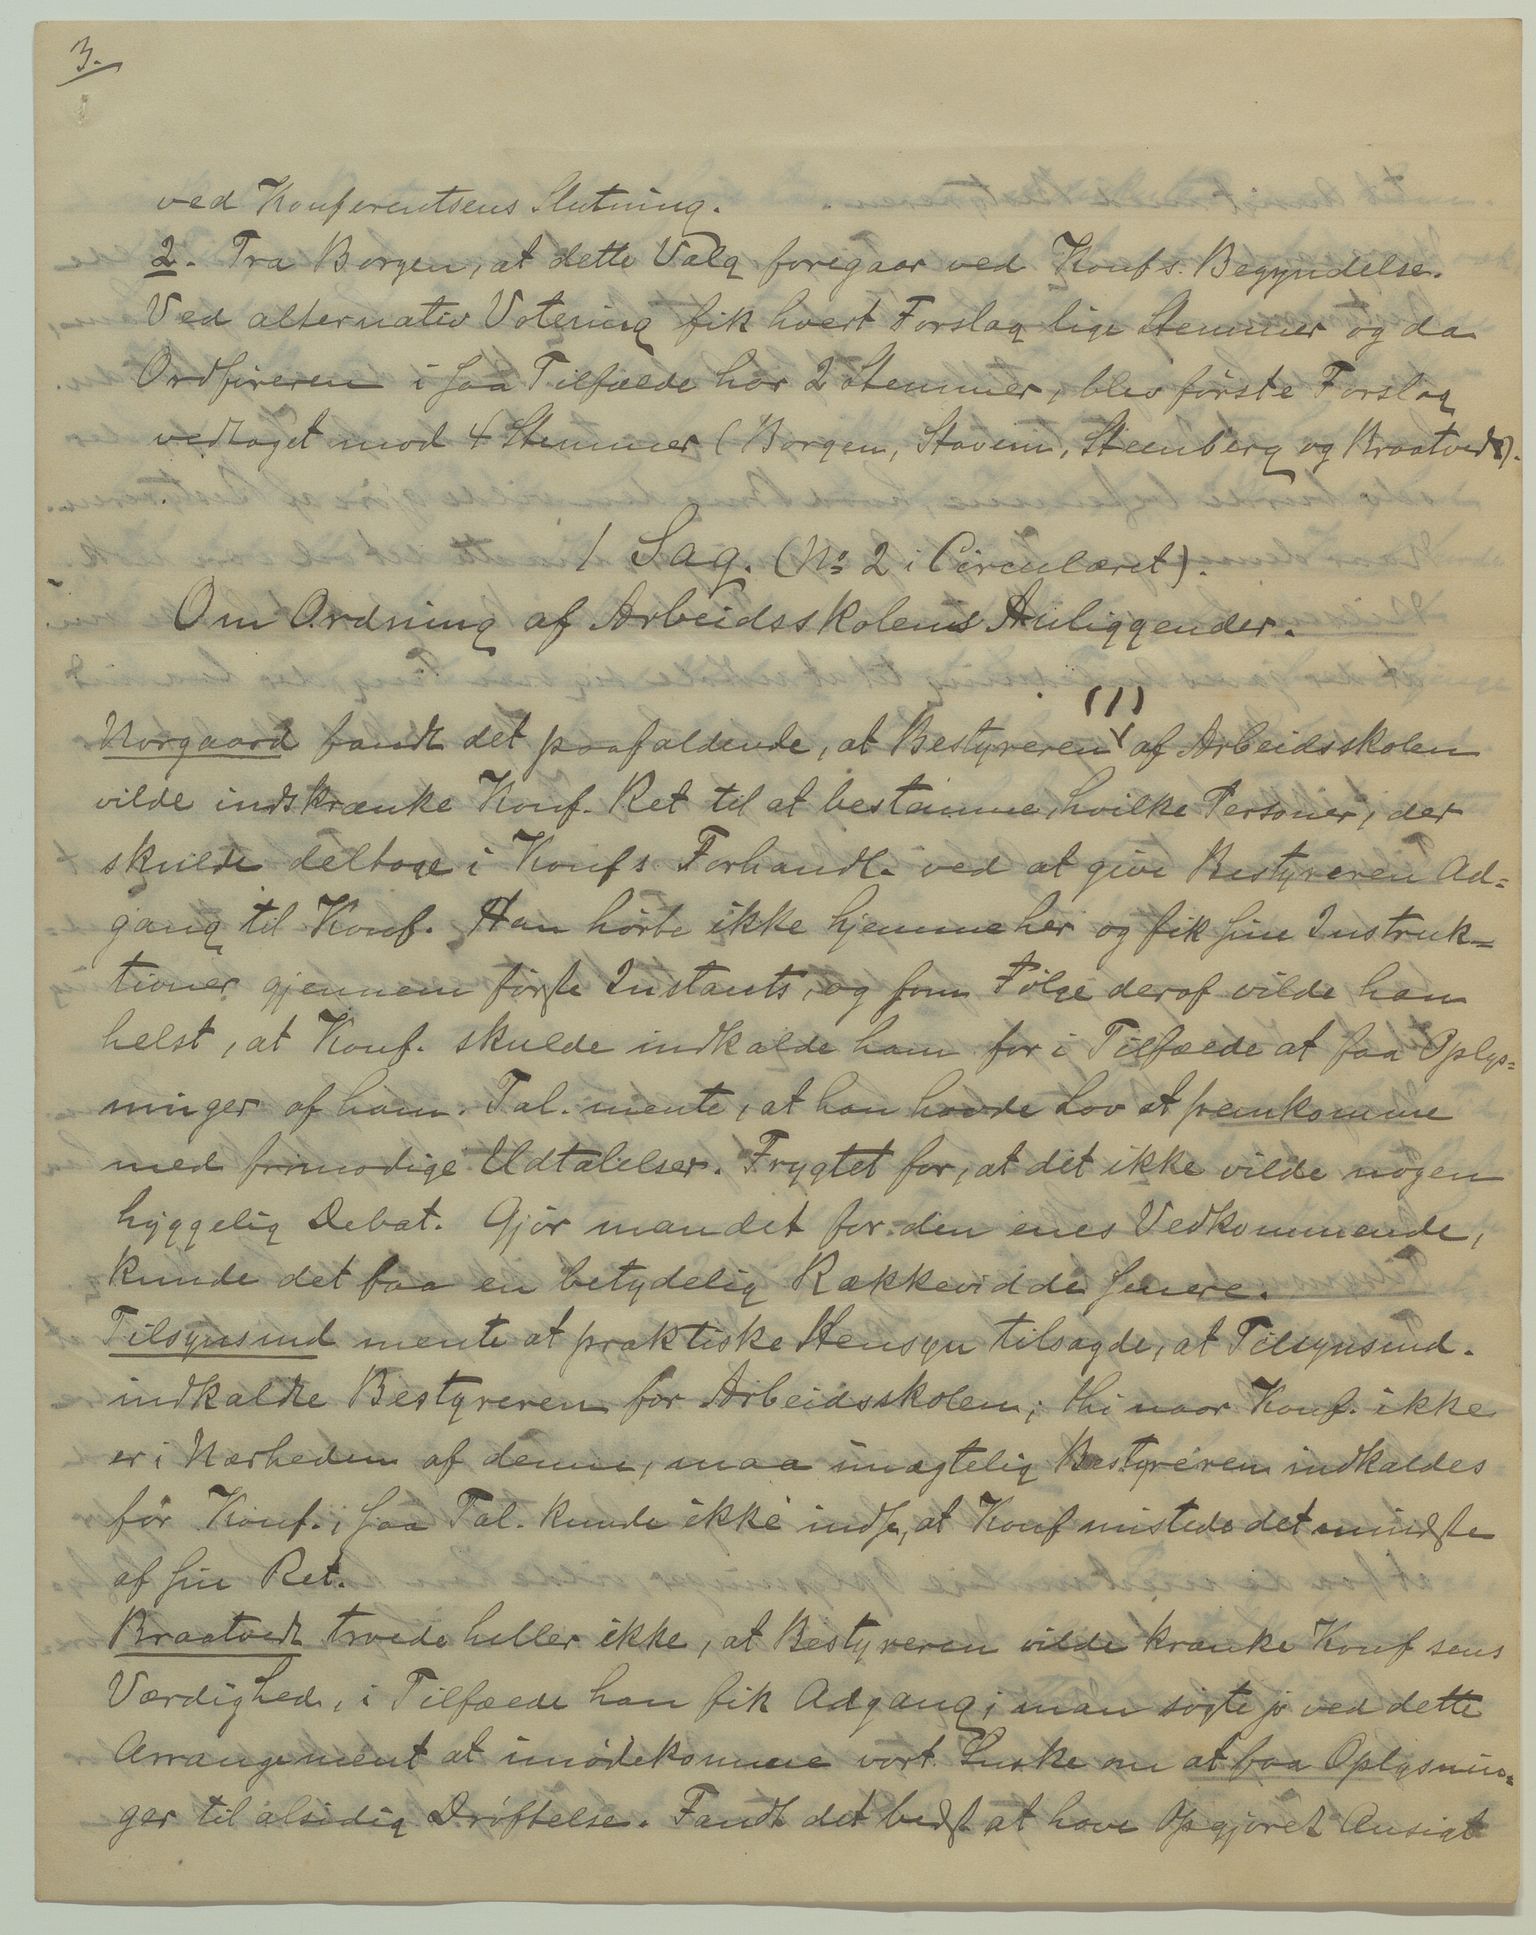 3.
ved Konferentsens Slutning.
2. Fra Borgen, at dette Valg foregaar ved Konfs. Begyndelse.
Ved alternativ Votering fik hvert Forslag lige Stemmer og da
Ordføreren i saa Tilfælde har 2 Stemmer, blev første Forslag
vedtaget mod 4 Stemmer (Borgen, Stavem, Steenberg og Braatvedt).
1 Sag. (No 2 i Circulæret).
Om Ordning af Arbeidsskolens Anliggender.
(1)
Norgaard fandt det paafaldende, at Bestyreren af Arbeidsskolen
vilde indskrænke Konf. Ret til at bestemme, hvilke Personer, der
skulde deltage i Konfs Forhandl. ved at give Bestyreren Ad=
gang til Konf. Han hørte ikke hjemme her og fik sine Instruk=
tioner gjennem første Instants, og som Følge deraf vilde han
helst, at Konf. skulde indkalde ham for i Tilfælde at faa Oplys=
ninger af ham. Tal. mente, at han havde Lov at fremkomme
med frimodige Udtalelser. Frygtet for, at det ikke vilde nogen
hyggelig Debat. Gjør man det for den enes Vedkommende,
kunde det faa en betydelig Rækkevidde senere.
Tilsynsmd mente at praktiske Hensyn tilsagde, at Tilsynsmd.
indkaldte Bestyreren for Arbeidsskolen; thi naar Konf. ikke
er i Nærheden af denne, maa unægtelig Bestyreren indkaldes
før Konf.; saa Tal. kunde ikke indse, at Konf mistede det mindste
af sin Ret.
Braatvedt troede heller ikke, at Bestyreren vilde krænke Konfsens
Værdighed, i Tilfælde han fik Adgang; man søgte jo ved dette
Arrangement at imødekomme vort Ønske om at faa Oplysnin=
ger til alsidig Drøftelse. Fandt det bedst at have Opgjøret Ansigt